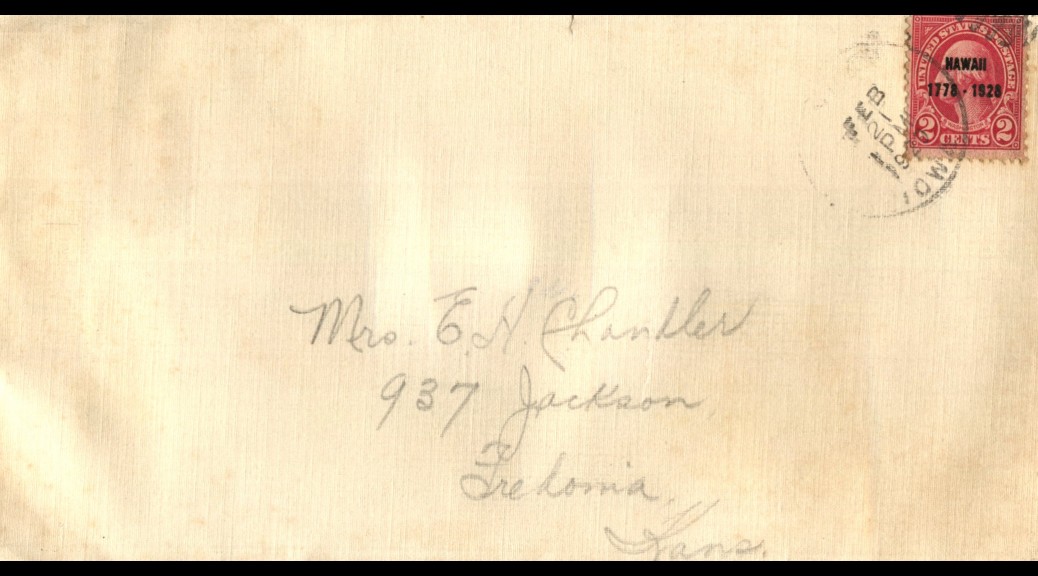 UNITED STATES POSTAGE
HAWAII
1778 - 1928
2 CENTS 2
FEB
21
PM
IOWA
Mrs. E. H. Chandler
937 Jackson
Fredonia,
Kans.